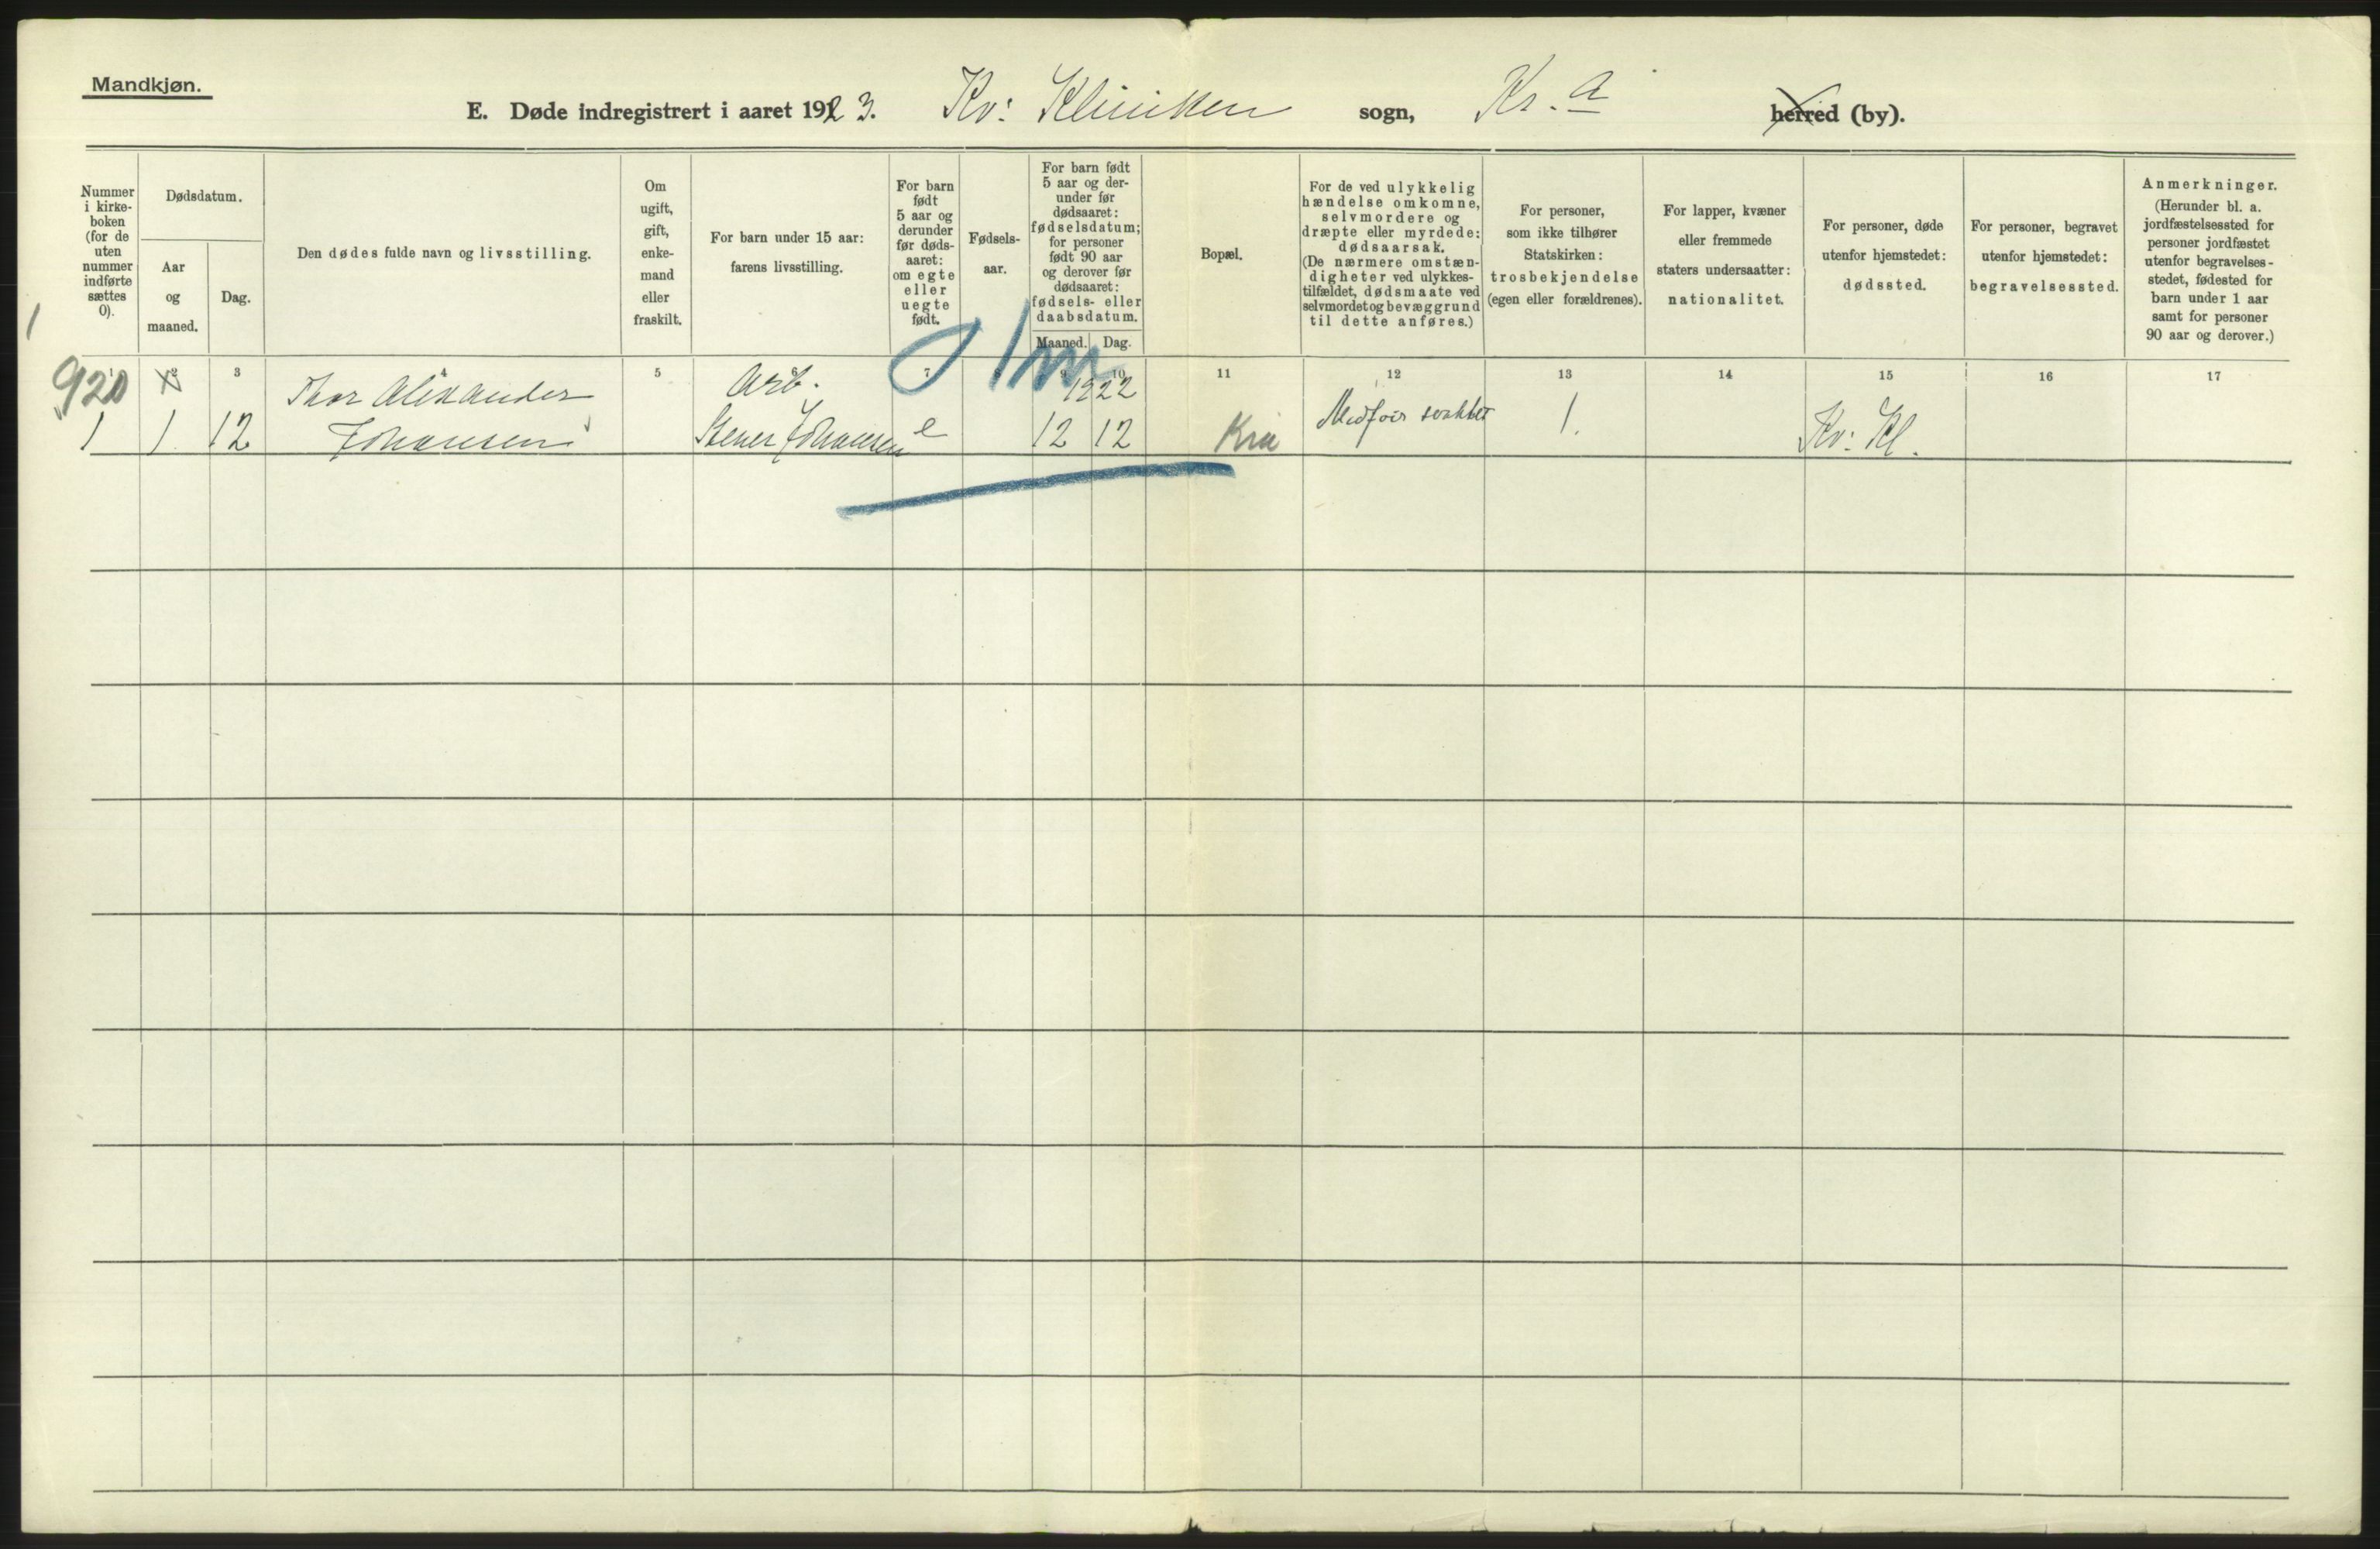 Mandkjøn.
E. Døde indregistrert i aaret 1923. Kv: Klinikken sogn, Kr.a herred (by).
Nummer
i kirke-
boken
(for de
uten
nummer
indførte
sættes
0).
Dødsdatum.
Aar
og
maaned.
Dag.
Den dødes fulde navn og livsstilling.
Om
ugift,
gift,
enke-
mand
eller
fraskilt.
For barn under 15 aar:
farens livsstilling.
For barn
født
5 aar og
derunder
før døds-
aaret:
om egte
eller
uegte
født.
Fødsels-
aar.
For barn født
5 aar og der-
under før
dødsaaret:
fødselsdatum;
for personer
født 90 aar
og derover før
dødsaaret:
fødsels- eller
daabsdatum.
Maaned. Dag.
Bopæl.
For de ved ulykkelig
hændelse omkomne,
selvmordere og
dræpte eller myrdede:
dødsaarsak.
(De nærmere omstæn-
digheter ved ulykkes-
tilfældet, dødsmaate ved
selvmordet og bevæggrund
til dette anføres.)
For personer,
som ikke tilhører
Statskirken:
trosbekjendelse
(egen eller forældrenes).
For lapper, kvæner
eller fremmede
staters undersaatter:
nationalitet.
For personer, døde
utenfor hjemstedet:
dødssted.
For personer, begravet
utenfor hjemstedet:
begravelsessted.
Anmerkninger.
(Herunder bl. a.
jordfæstelsessted for
personer jordfæstet
utenfor begravelses-
stedet, fødested for
barn under 1 aar
samt for personer
90 aar og derover.)
1
1 2 3 4 5 6 7 8 9 10 11 12 13 14 15 16 17
920 Thor Alexander Arb. 1m 1922
1 1. 12 Johansen Stener Johansen e 12 12 Kra Medfødt svakhet 1. Kv: Kl.